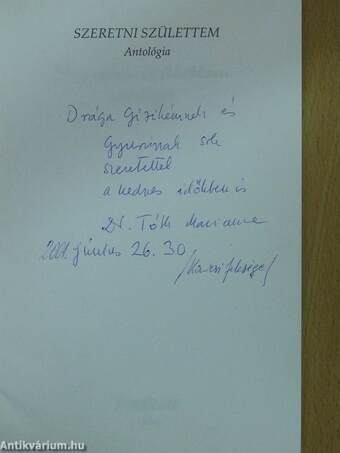 SZERETNI SZÜLETTEM
Antológia
Drága Gizikémnek és
Gyurinak sok
szeretettel
a kedves időkben is
Dr. Tóth Marianne
2001. június 26. 30
Antikvárium.hu